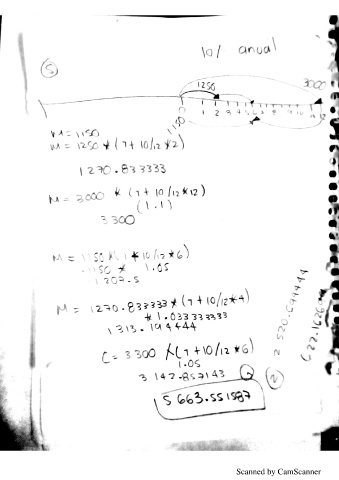 10/ anual
5
1250
3000
0 1 2 3 4 5 6 7 8 9 10 11 12
1150
M = 1150
M = 1250 * (1 + 10/12 * 2)
1270.833333
M = 3000 * (1 + 10/12 * 12)
(1.1)
3300
M = 1150 * (1 + 10/12 * 6)
1150 * 1.05
1207.5
M = 1270.833333 * (1 + 10/12 * 4)
* 1.033333333
1313.194444
C = 3300 / (1 + 10/12 * 6)
1.05
3142.857143
2
2 520.694444
5 663.551587
Scanned by CamScanner